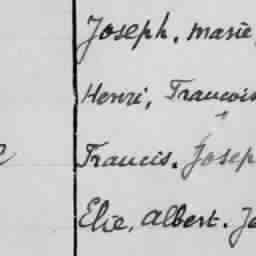 Joseph, Marie
Henri, Francois
Francis. Josep
Elie, Albert. Jo